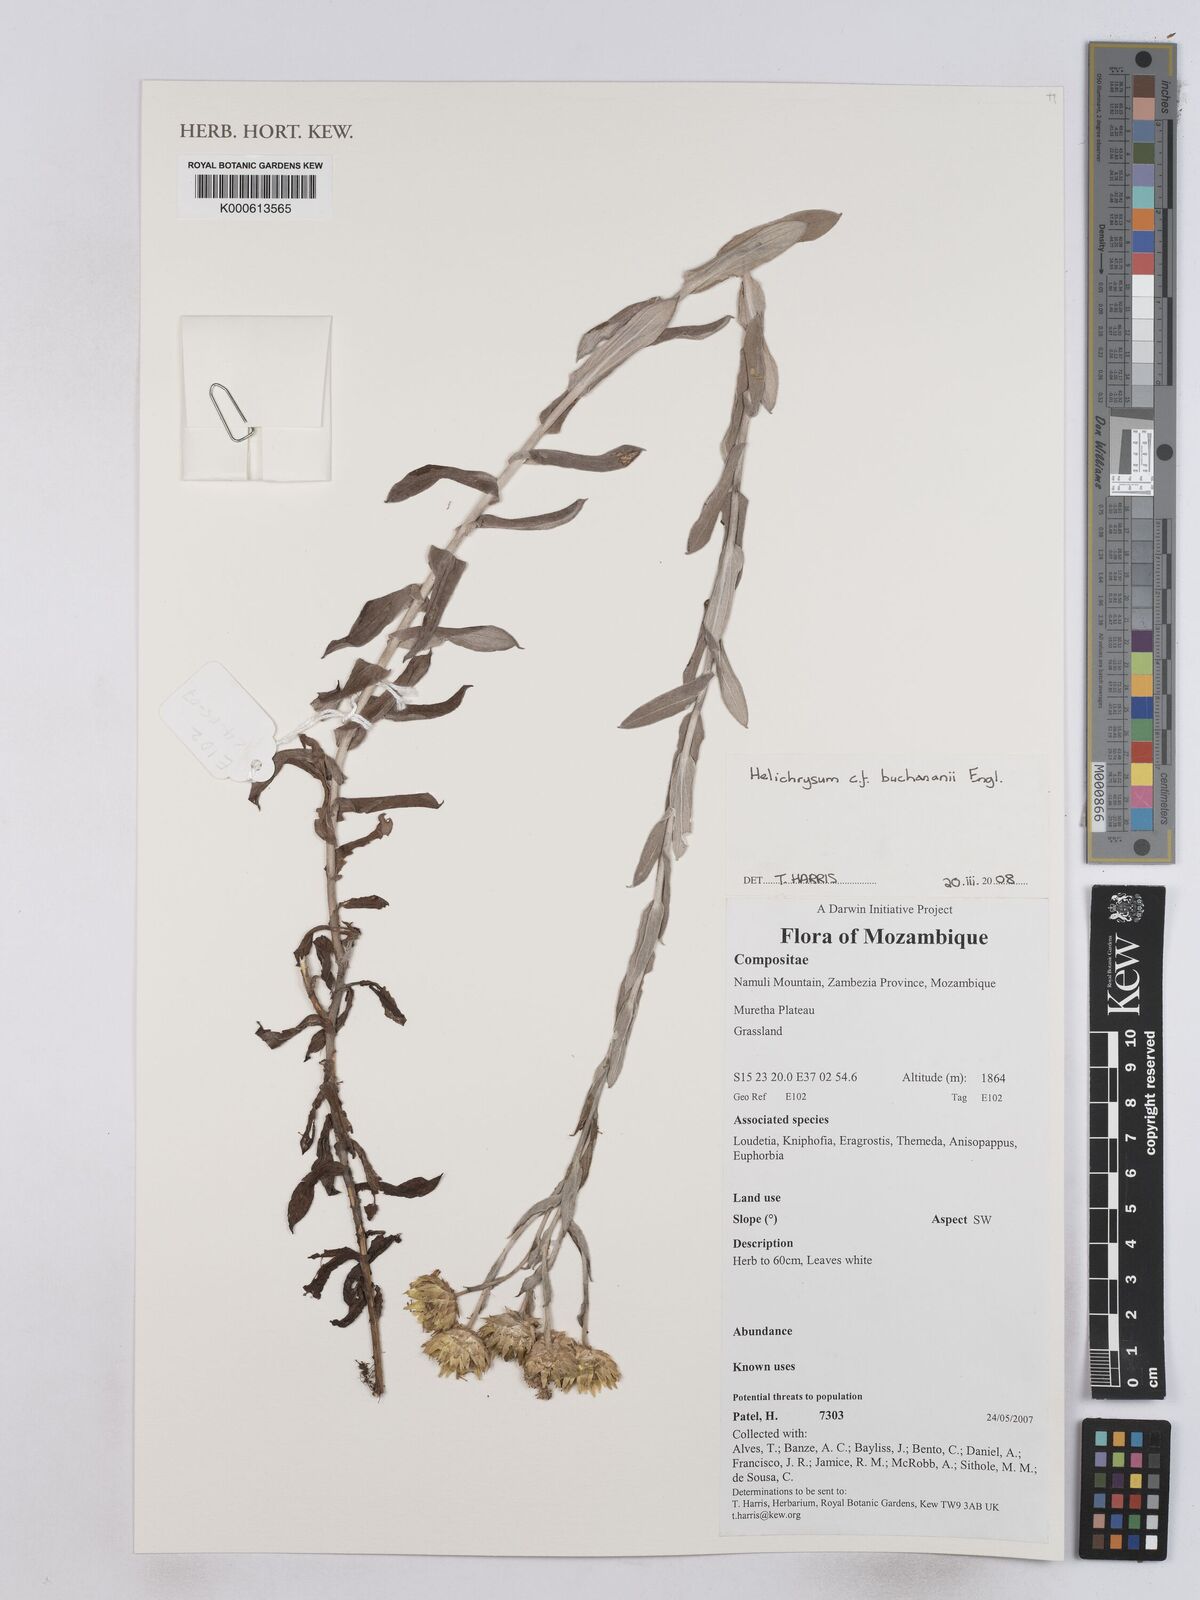 HERB. HORT. KEW.
ROYAL BOTANIC GARDENS KEW
K000613565
E102
Helichrysum c.f. buchananii Engl.
DET. T. HARRIS 20.iii.2008
A Darwin Initiative Project
Flora of Mozambique
Compositae
Namuli Mountain, Zambezia Province, Mozambique
Muretha Plateau
Grassland
S15 23 20.0 E37 02 54.6 Altitude (m): 1864
Geo Ref E102 Tag E102
Associated species
Loudetia, Kniphofia, Eragrostis, Themeda, Anisopappus,
Euphorbia
Land use
Slope (°) Aspect SW
Description
Herb to 60cm, Leaves white
Abundance
Known uses
Potential threats to population
Patel, H. 7303 24/05/2007
Collected with:
Alves, T.; Banze, A. C.; Bayliss, J.; Bento, C.; Daniel, A.;
Francisco, J. R.; Jamice, R. M.; McRobb, A.; Sithole, M. M.;
de Sousa, C.
Determinations to be sent to:
T. Harris, Herbarium, Royal Botanic Gardens, Kew TW9 3AB UK
t.harris@kew.org
inches
Density
Don Williams
centimeters
M000866
Kew
Royal Botanic Gardens
copyright reserved
10
9
8
7
6
5
4
3
2
1
0
cm